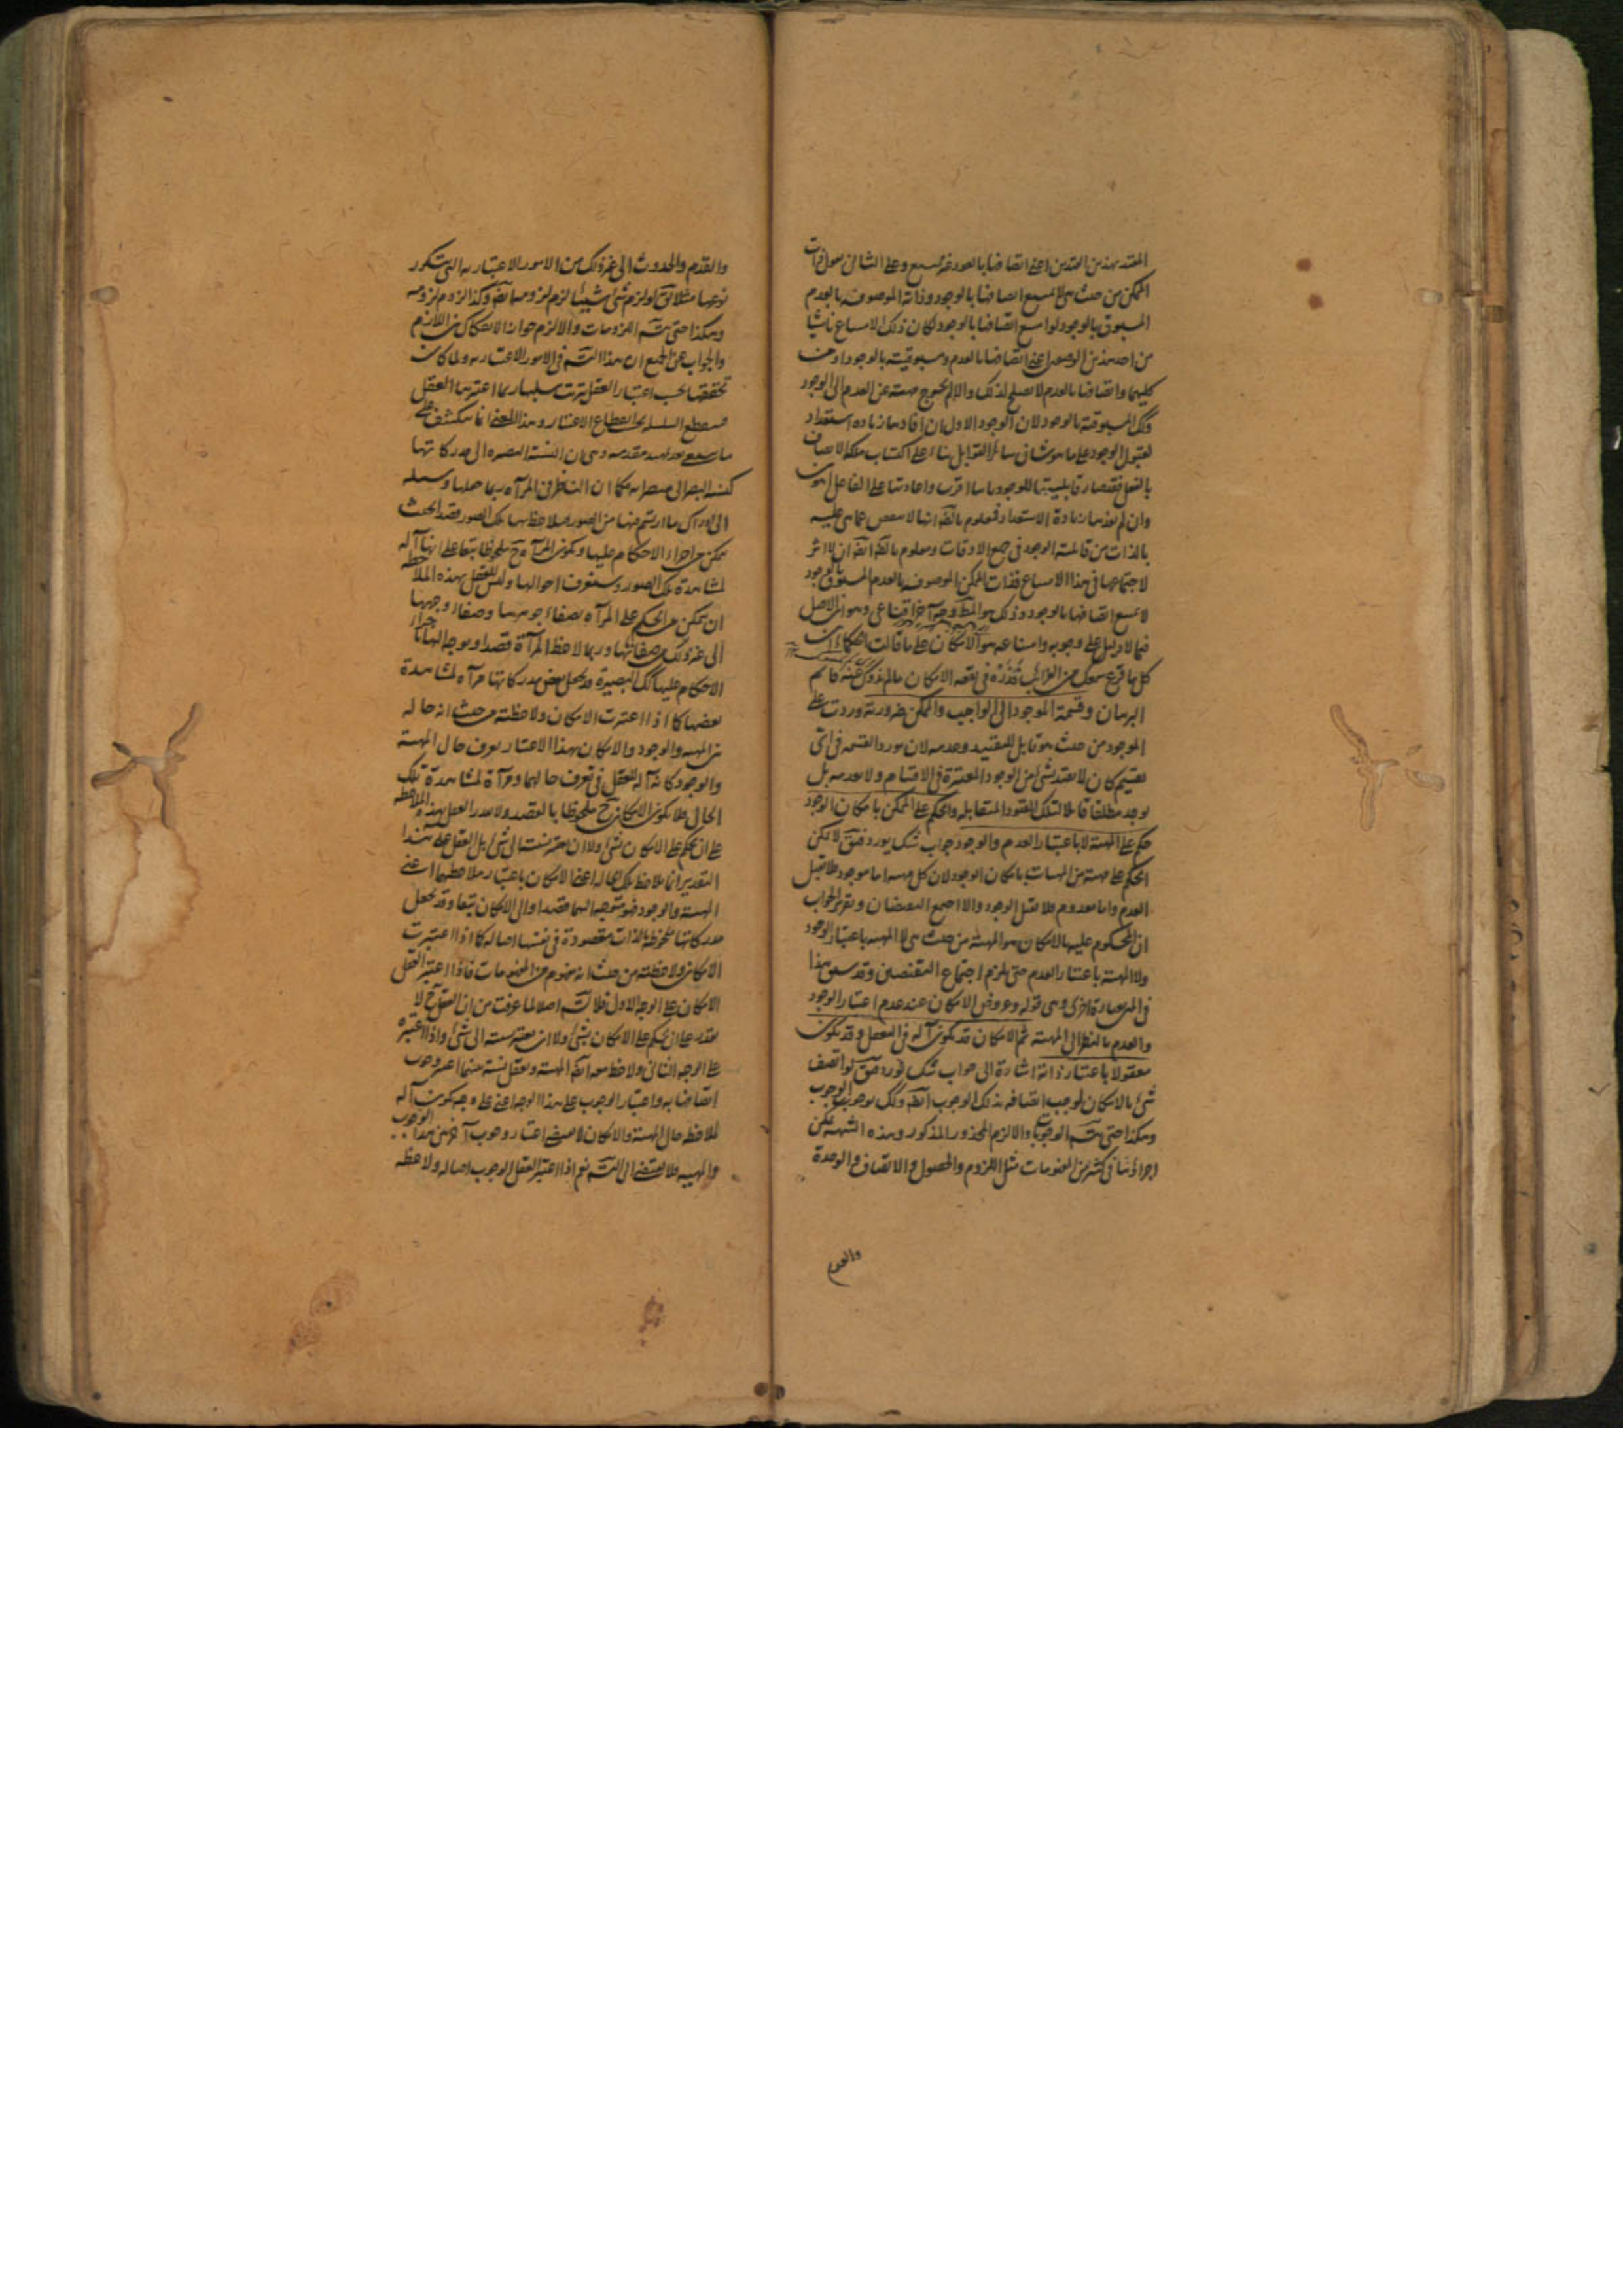 المقيد بهذين القيدين اعنى اتصافها بالعود غير ممتنع وعلى الثانى نقول ذات
الممكن من حيث هى لا تمتنع اتصافها بالوجود وذاته الموصوفه بالعدم
المسبوق بالوجود لو امتنع اتصافها بالوجود لكان ذلك الامتناع ناشيا
من احد هذين الوصفين اعنى اتصافها بالعدم ومسبوقيته بالوجود او من
كليهما واتصافها بالعدم لا يصلح لذلك والا لم يخرج مهية عن العدم الى الوجود
وكك المسبوقية بالوجود لان الوجود الاول ان افادها زيادة استعداد
لقبول الوجود على ما هو شان سائر القوابل بناء على اكتساب ملكة الاتصاف
بالفعل فقد صار قابليتها للوجود ثانيا اقرب واعادتها على الفاعل اهون
وان لم يفدها زيادة الاستعداد فمعلوم بالضه انها لا تنقص عما هى عليه
بالذات من قابلية الوجود فى جميع الاوقات ومعلوم بالضه ايضا ان لا اثر
لاجتماعهما فى هذا الامتناع فذات الممكن الموصوف بالعدم المسبوق بالوجود
لا تمتنع اتصافها بالوجود وذلك هو المط وجه آخر اقناعى وهو ان الاصل
فيما لا دليل على وجوبه وامتناعه هو الامكان على ما قالت الحكماء ان
كل ما قرع سمعك من الغرائب فذره فى بقعه الامكان ما لم يذدك عنه قائم
البرهان وقسمة الموجود الى الواجب والممكن ضرورية وردت على
الموجود من حيث هو قابل للتقييد وعدمه لان مورد القسمه فى اى
تقسيم كان لا يقيد بشئ من الوجود المعتبرة فى الاقسام ولا بعدمه بل
يوجد مطلقا قابلا لتلك القيود المتقابله والحكم على الممكن بامكان الوجود
حكم على المهية لا باعتبار العدم والوجود جواب شك يورد فيق لا يمكن
الحكم على مهية من المهيات بامكان الوجود لان كل مهيه اما موجود فلا تقبل
العدم واما معدوم فلا تقبل الوجود والا اجتمع النقيضان وتقرير الجواب
ان المحكوم عليه بالامكان هو المهية من حيث هى لا المهيه باعتبار الوجود
ولا المهية باعتبار العدم حتى يلزم اجتماع النقيضين وقد سبق هذا
فى المتن بعبارة اخرى وهى قوله وعروض الامكان عند عدم اعتبار الوجود
والعدم بالنظر الى المهية ثم الامكان قد يكون آلة فى التعقل وقد يكون
معقولا باعتبار ذاته اشارة الى جواب شك يورد فيق لو اتصف
شئ بالامكان لوجب اتصافه بذلك الوجوب ايضا وكك بوجوب الوجوب
وهكذا حتى يتسه الوجوبات والا لزم المحذور المذكور وهذه الشبهه يمكن
اجراؤها فى كثير من المفهومات مثل اللزوم والحصول والاتصاف والوحدة
والقدم
والقدم والحدوث الى غير ذلك من الامور الاعتباريه التى يتكرر
نوعها مثلا يق لو لزم شئ شيئا لزم لزومها ايضا وكذا لزوم لزومه
وهكذا حتى يتسه اللزومات والا لزم جواز الانفكاك من اللازم
والجواب عن الجميع ان هذا التسه فى الامور الاعتباريه ولما كان
تحققها بحسب اعتبار العقل ترتب سلسلها ربما اعتبرها العقل
فينقطع السلسله بحسب انقطاع الاعتبار وهذا المعنى انما ينكشف على
ما ينبغى بعد تمهيد مقدمه وهى ان نسبة البصيره الى مدركاتها
كنسبة البصر الى مبصراته فكما ان الناظر فى المرآة ربما جعلها وسيله
الى ادراك ما ارتسم فيها من الصور فيلاحظ بها تلك الصور قصدا بحيث
يمكن من اجراء الاحكام عليها ويكون المرآة ح ملحوظا تبعا على انها آلة
لمشاهدة تلك الصور وستعرف احوالها وليس للعقل بهذه الملاحظه
ان يتمكن من الحكم على المرآة بصفاء جوهرها وصفاء وجهها
الى غير ذلك من صفاتها وربما لاحظ المرآة قصدا وتوجه اليها باجراء
الاحكام عليها كك البصيرة قد يجعل بعض مدركاتها مرآة لمشاهدة
بعضها كما اذا اعتبرت الامكان ولاحظته من حيث انه حاله
بين المهيه والوجود والامكان بهذا الاعتبار يعرف حال المهية
والوجود كانه آلة للعقل فى تعرف حالهما ومرآة لمشاهدة تلك
الحال فلا يكون الامكان ح ملحوظا بالقصد ولا يقدر العقل بهذه الملاحظه
على ان يحكم على الامكان بشئ ولا ان يعتبر نسبته الى شئ بل العقل على هذا
التقدير انما يلاحظ تلك الحاله اعنى الامكان باعتبار ملاحظتهما اعنى
المهية والوجود فهو متوجه اليهما قصدا والى الامكان تبعا وقد يجعل
مدركاتها ملحوظة بالذات مقصودة فى نفسها اصالة كما اذا اعتبرت
الامكان ولاحظته من حيث انه مفهوم من المفهومات فاذا اعتبر العقل
الامكان على الوجه الاول فلا تسه اصلا لما عرفت من ان العقل ح لا
يقدر على ان يحكم على الامكان بشئ ولا ان يعتبر نسبته الى شئ واذا اعتبره
على الوجه الثانى ولاحظ معه ايضا المهية وتعقل نسبة بينهما اعتبر وجوب
اتصافها به واعتبار الوجوب على هذا الوجه اعنى على وجه يكون آلة
لملاحظه حال المهية والامكان لا يقتضى اعتبار وجوب آخر بين هذا الوجوب
والمهيه فلا يقتضى الى التسه نعم اذا اعتبر العقل الوجوب اصالة ولاحظه